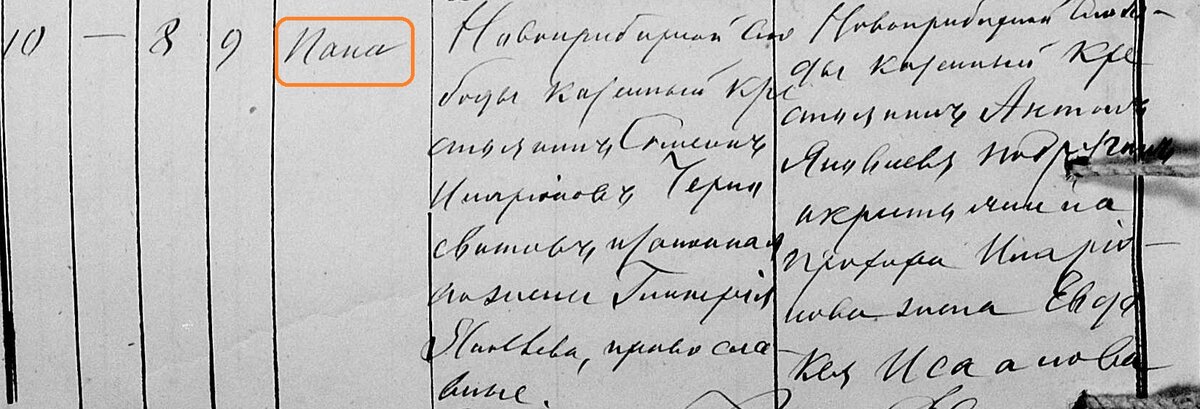 10 — 8 9 Нана
Новоприбирной сло
боды казенный кре
стьянинъ Семенъ
Иларіоновъ Черно
световъ и законная
его жена Гликерія
Яковлева, православ
вные.
Новоприбирной слобо-
ды казенный кре
стьянинъ Антонъ
Яковлевъ
и крестьянина
Прохора Иларіо-
нова жена Евдо
кея Исаакова